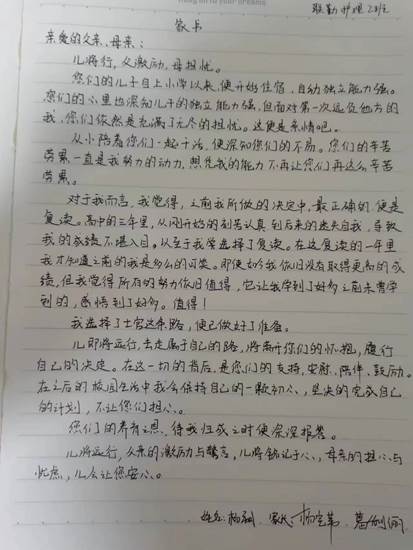 联勤护理2班
家书
亲爱的父亲、母亲:
儿将行,父激励,母担忧。
您们的儿子自上小学以来,便开始住宿,自幼独立能力强。
您们的心里也深知儿子的独立能力强,但面对第一次远赴他方的
我,您们依然是充满了无尽的担忧。这便是亲情吧。
从小陪着你们一起干活,便深知你们的不易。您们的辛苦
劳累一直是我努力的动力,想凭我的能力不再让您们再这么辛苦
劳累。
对于我而言,我觉得,之前我所做的决定中,最正确的便是
复读。高中的三年里,从刚开始的刻苦认真到后来的迷失自我,导致
我的成绩不堪入目。从至于我常选择了复读。在这复读的一年里
我才知道之前的我是多么的可笑。即便如今我依旧没有取得更高的成
绩,但我觉得所有的努力依旧值得,它让我学到了好多之前未曾学
到的,感悟到了好多。值得!
我选择了士官这条路,便已做好了准备。
儿即将远行,去走属于自己的路,将离开你们的怀抱,履行
自己的决定。在这一切的背后,是您们的支持,安慰,陪伴,鼓励。
在之后的校园生活中我会保持自己的一颗初心,坚决的完成自己
的计划,不让您们担心。
您们的养育之恩,待我归成之时便会深报答。
儿将远行,父亲的激励与誓言,儿将铭记于心,母亲的担心与
忧虑,儿会让您安心。
姓名:杨 家长:杨 葛